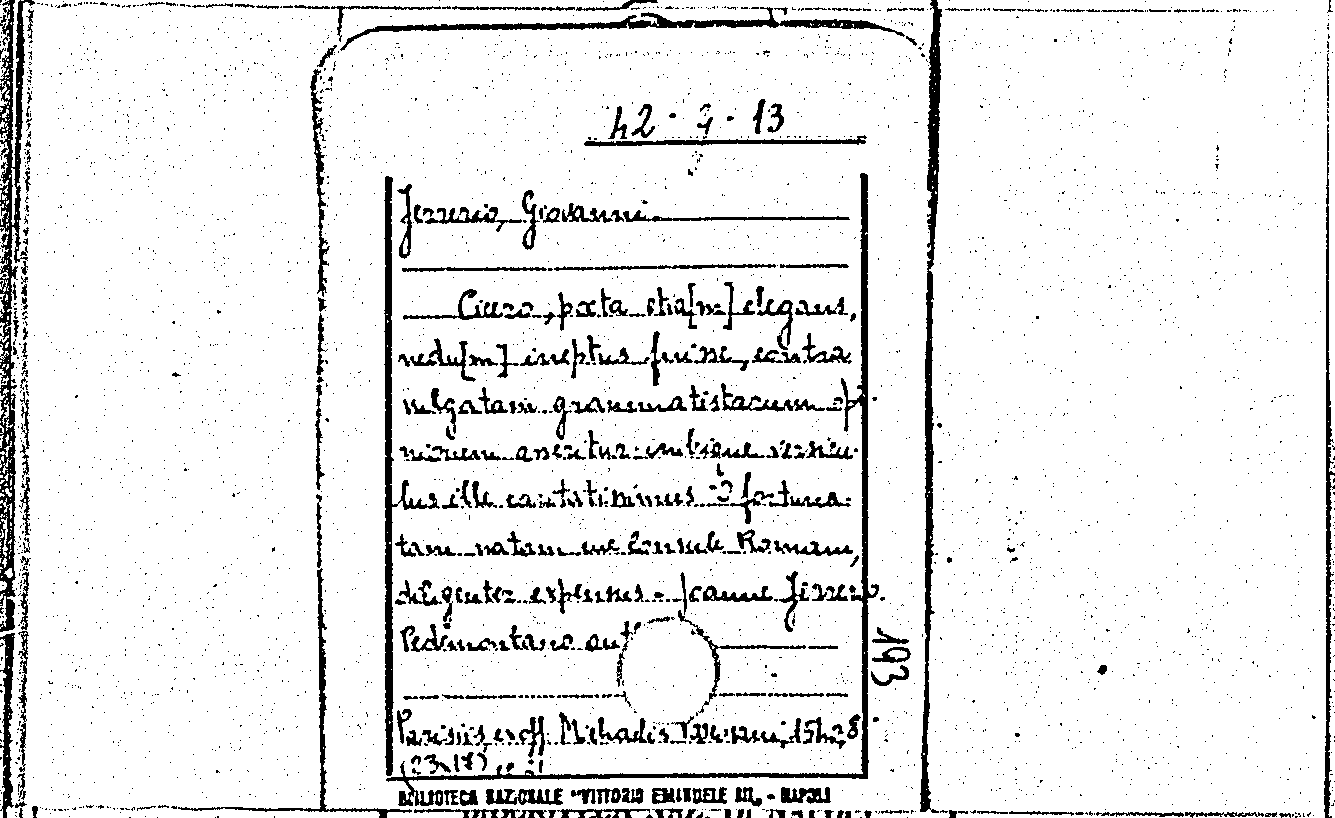 42·9·13
Ferrerio, Giovanni.
Cicero, poeta etia[m] elegans,
nedu[m] ineptus fuisse, contra
vulgatam grammatistarum opi-
nionem asseritur: ubique versicu-
lus ille cautatimimus O fortuna-
tam natam me Consule Romam,
diligenter expensus. Joanne Ferrerio.
Pedemontano aut
Parisiis, ex off. Michaelis Vascosani, 15
(23x17)
193
BIBLIOTECA NAZIONALE "VITTORIO EMANUELE III" - NAPOLI